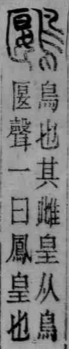 鶠
鳥也其雌皇从鳥
匽聲一曰鳳皇也